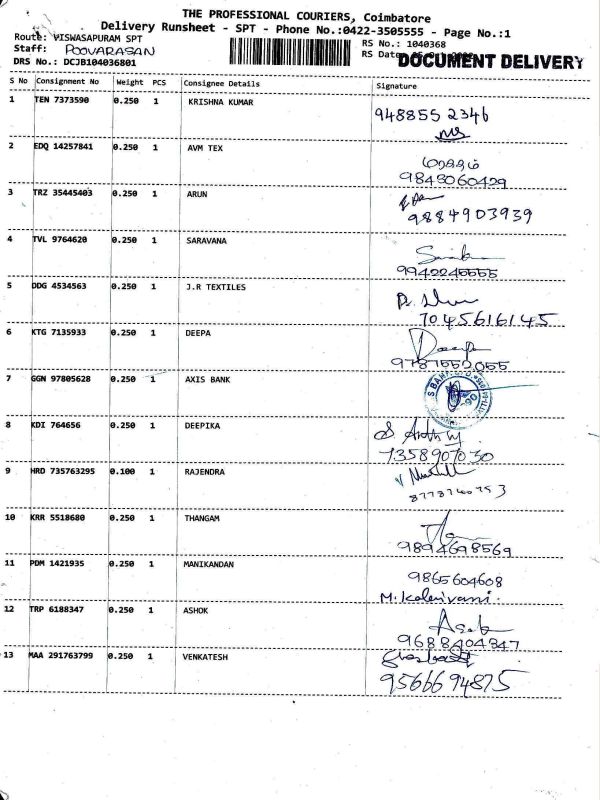 THE PROFESSIONAL COURIERS, Coimbatore
Delivery Runsheet - SPT - Phone No.:0422-3505555 - Page No.:1
Route: VISWASAPURAM SPT
Staff: POOVARASAN
DRS No.: DCJB104036801
RS No.: 1040368
RS Date
DOCUMENT DELIVERY
S No Consignment No Weight PCS Consignee Details Signature
1 TEN 7373590 0.250 1 KRISHNA KUMAR 948855 2346
2 EDQ 14257841 0.250 1 AVM TEX
9843060429
3 TRZ 35445403 0.250 1 ARUN
9884903939
4 TVL 9764620 0.250 1 SARAVANA
9942245555
5 DDG 4534563 0.250 1 J.R TEXTILES
7045616145
6 KTG 7135933 0.250 1 DEEPA Deepa
9787552055
7 GGN 97805628 0.250 1 AXIS BANK
8 KDI 764656 0.250 1 DEEPIKA
7358907030
9 HRD 735763295 0.100 1 RAJENDRA
8778740753
10 KRR 5518680 0.250 1 THANGAM
9894698569
11 PDM 1421935 0.250 1 MANIKANDAN 9865604608
M. Kalaivani.
12 TRP 6188347 0.250 1 ASHOK Asok
9688404347
13 MAA 291763799 0.250 1 VENKATESH
9566694875